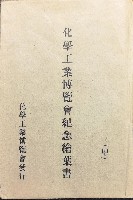 化學工業博覽會紀念繪葉書
化學工業博覽會發行